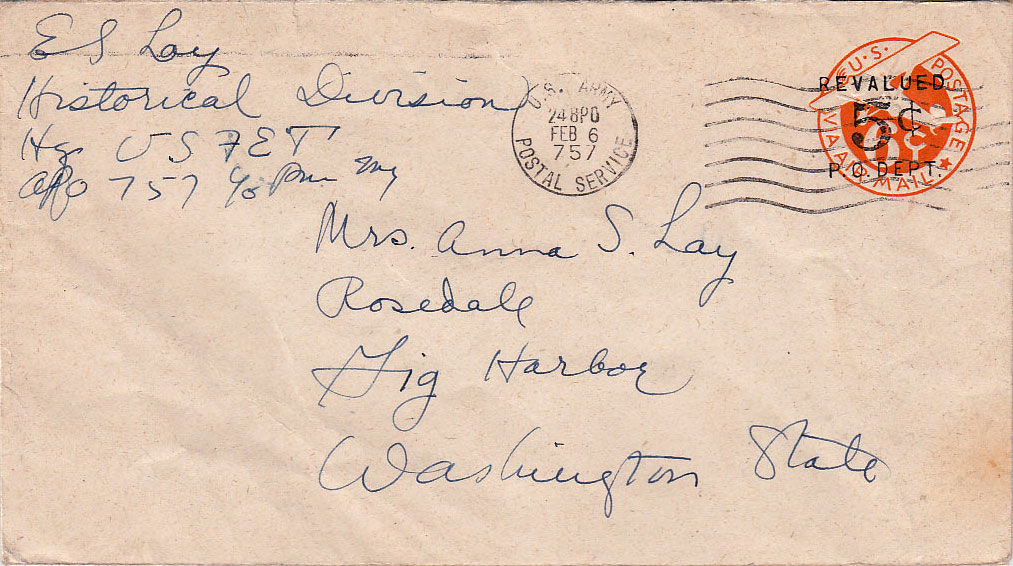 E S Lay
Historical Division
Hq U S F E T
APO 757 c/o PM NY
U.S. ARMY
248PO
FEB 6
757
POSTAL SERVICE
U.S. POSTAGE
REVALUED
5¢
6¢
P.O. DEPT.
VIA AIR MAIL
Mrs. Anna S. Lay
Rosedale
Gig Harbor
Washington State